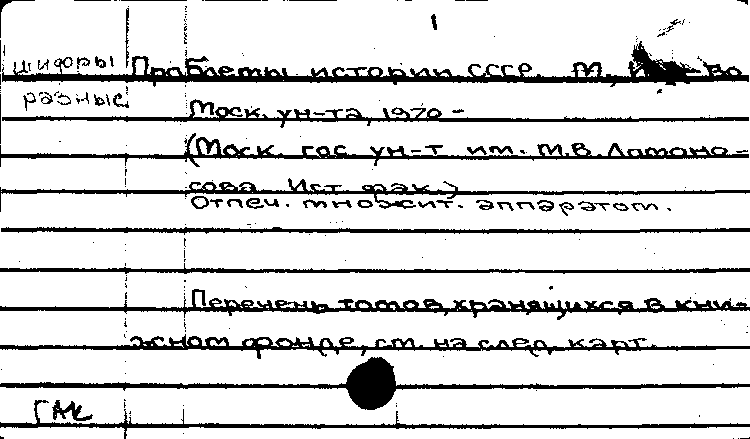 1
шифры Проблемы истории СССР. М., Изд-во
разные Моск. ун-та, 1970 -
(Моск. гос. ун-т им. М.В. Ломоно-
сова. Ист. фак.)
Отпеч. множит. аппаратом.
Перечень томов, хранящихся в кни-
жном фонде, см. на след. карт.
ГАК